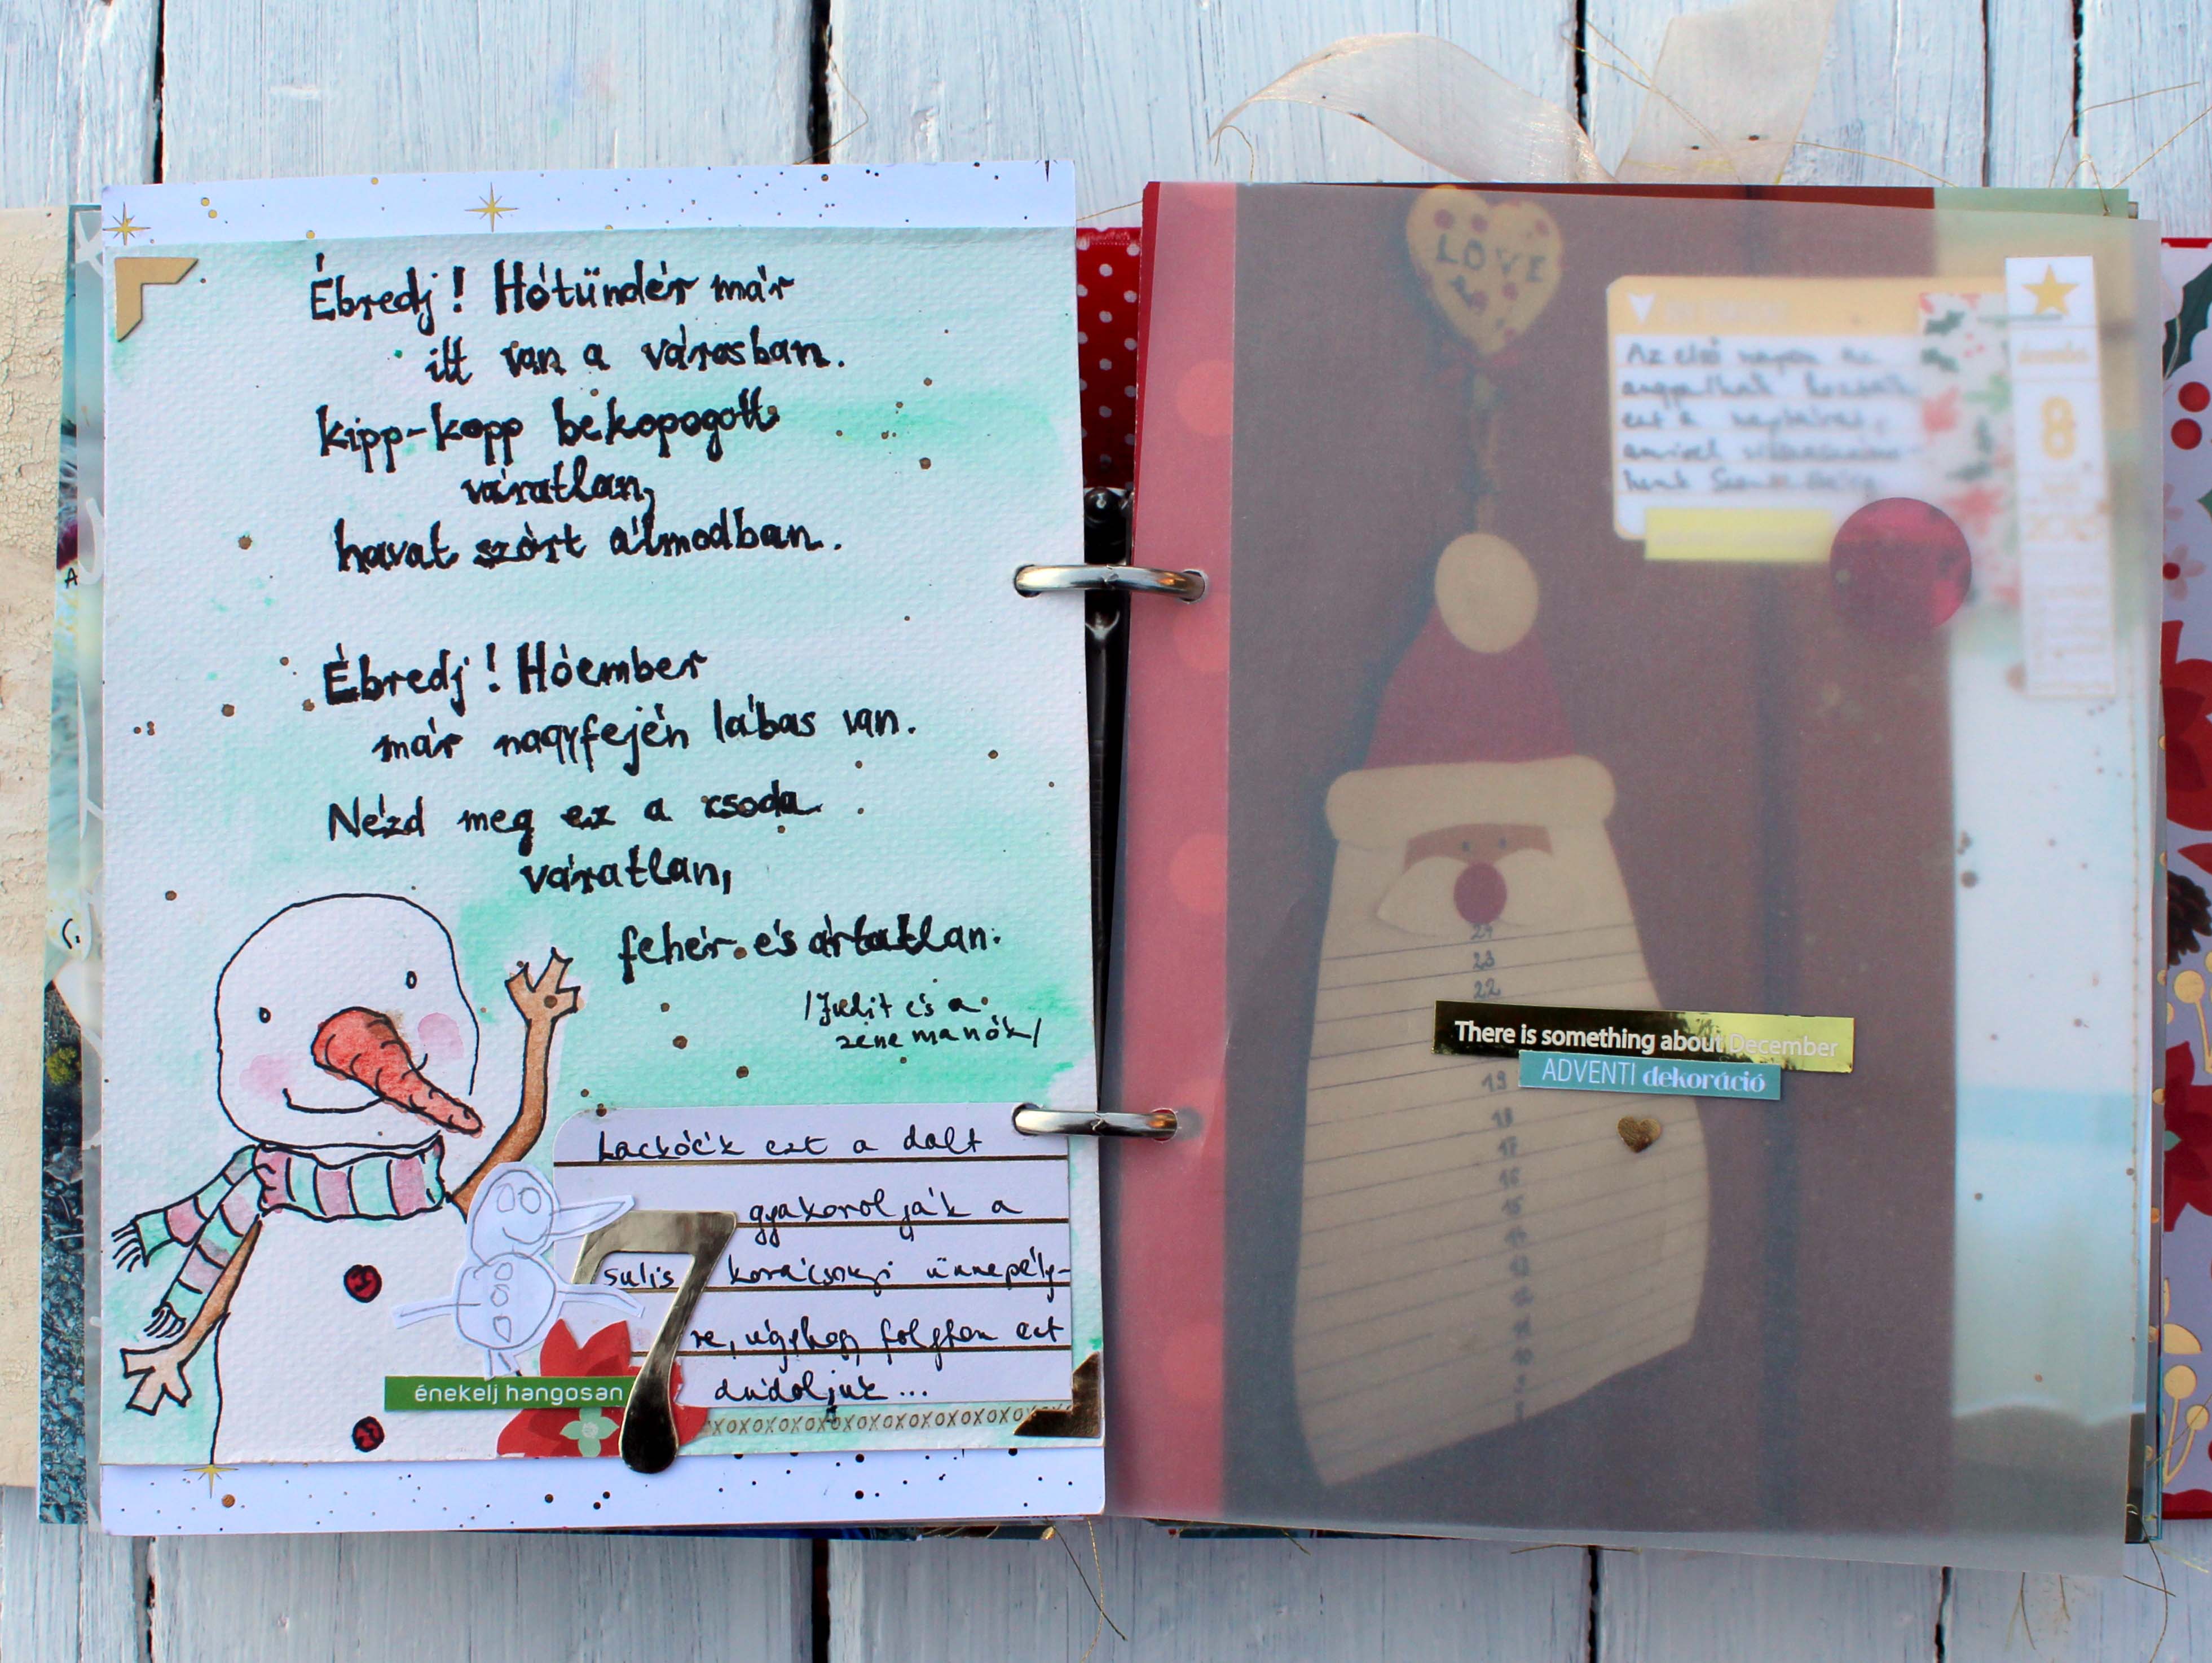 Ébredj! Hótündér már
itt van a városban.
kipp-kopp bekopogott
váratlan,
havat szórt álmodban.
Ébredj! Hóember
már nagyfején lábas van.
Nézd meg ez a csoda
váratlan,
fehér és ártatlan.
/Judit és a
zenemanók/
Lackóék ezt a dalt
gyakorolják a
sulis karácsonyi ünnepély-
re, úgyhogy folyton ezt
dúdoljuk...
énekelj hangosan
7
XOXOXOXOXOXOXOXOXOXOXO
LOVE
Az első napon az
ezt a
8
24
23
22
There is something about December
ADVENTI dekoráció
19
18
17
16
15
14
13